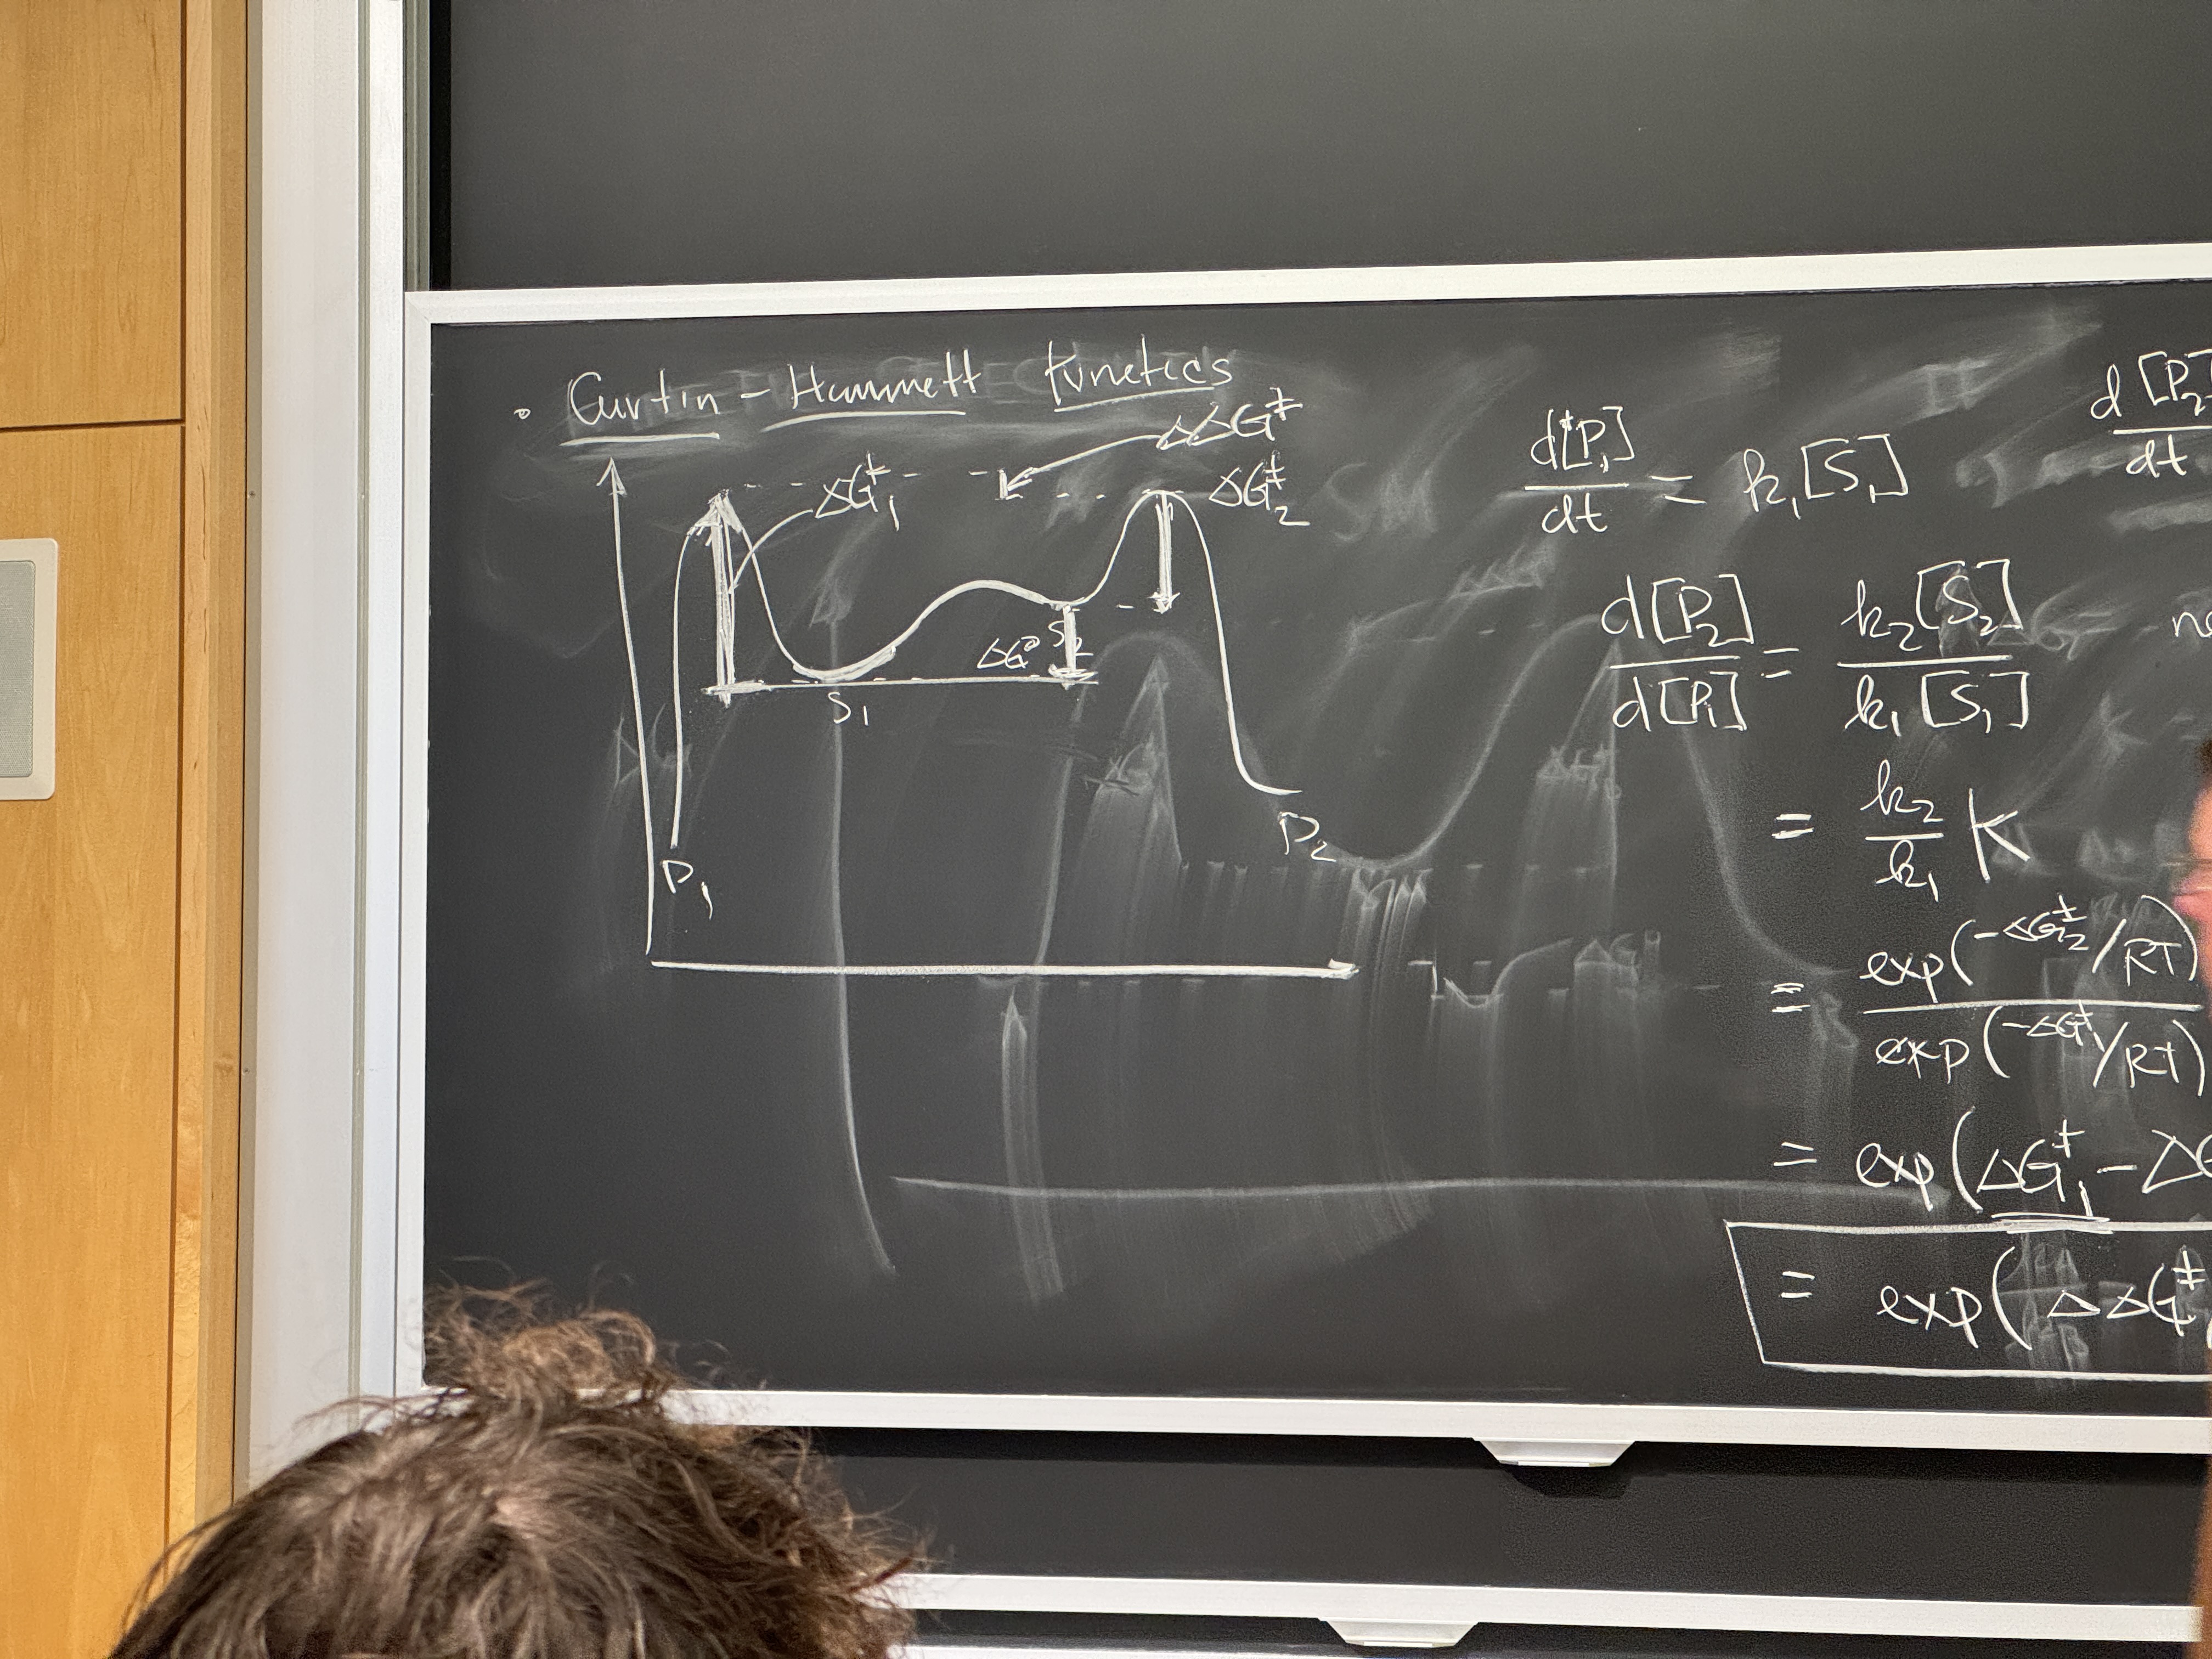 • Curtin - Hammett Kinetics
ΔΔG‡
ΔG‡₁
ΔG‡₂
S₂
ΔG°
S₁
P₂
P₁
d[P₁]/dt = k₁[S₁]
d[P₂]/dt
d[P₂]/d[P₁] = k₂[S₂]/k₁[S₁]
= k₂/k₁ K
= exp(-ΔG‡₂/RT)/exp(-ΔG‡₁/RT)
= exp(ΔG‡₁ - ΔG
= exp(ΔΔG‡